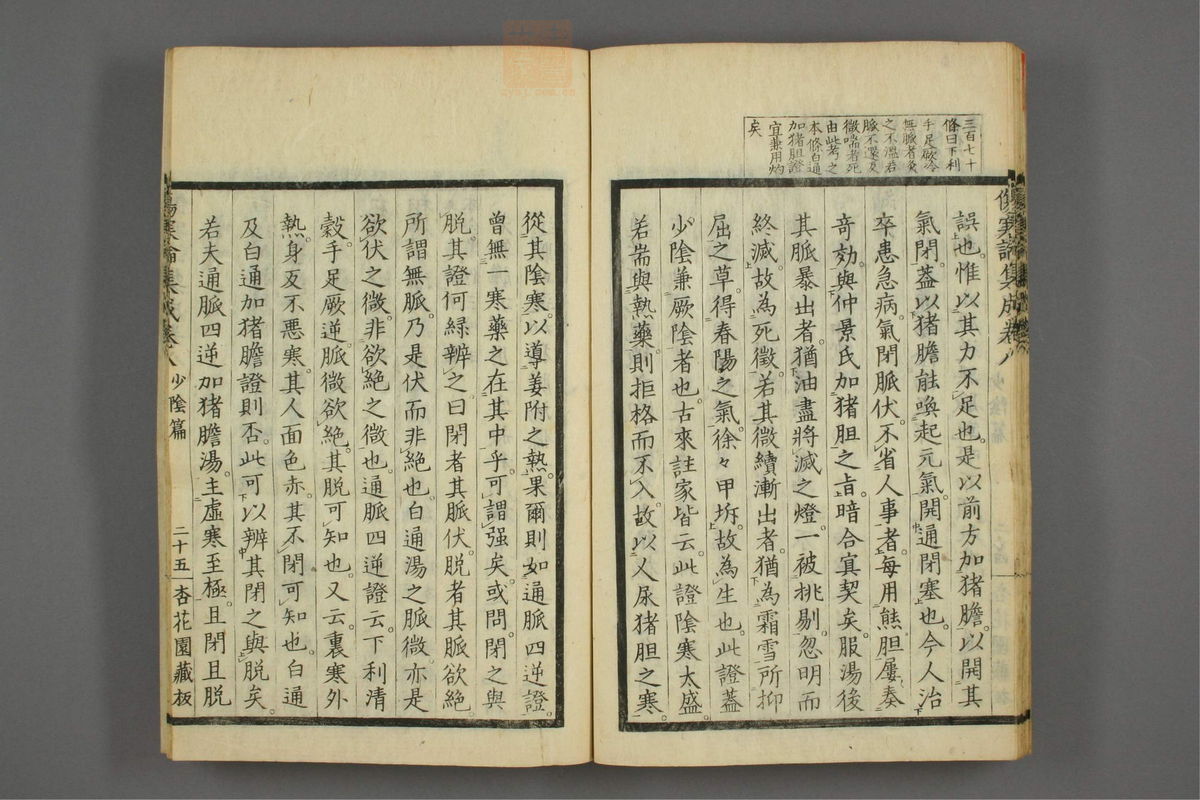 三百七十
條曰下利
手足厥冷
無脈者灸
之不溫若
脈不還反
微喘者死
由此考之
本條白通
加猪胆證
宜兼用灼
矣
傷寒論集成卷八
誤也惟以其力不足也是以前方加猪膽以開其
氣閉蓋以猪膽能喚起元氣開通閉塞也今人治
卒患急病氣閉脈伏不省人事者每用熊胆屢奏
奇効與仲景氏加猪胆之旨暗合宜契矣服湯後
其脈暴出者猶油盡將滅之燈一被挑剔忽明而
終滅故為死徵若其微續漸出者猶為霜雪所抑
屈之草得春陽之氣徐々甲坼故為生也此證蓋
少陰兼厥陰者也古來註家皆云此證陰寒太盛
若耑與熱藥則拒格而不入故以人尿猪胆之寒
從其陰寒以導姜附之熱果爾則如通脈四逆證
曾無一寒藥之在其中乎可謂强矣或問閉之與
脱其證何緣辨之曰閉者其脈伏脱者其脈欲絶
所謂無脈乃是伏而非絶也白通湯之脈微亦是
欲伏之微非欲絶之微也通脈四逆證云下利清
穀手足厥逆脈微欲絶其脱可知也又云裏寒外
熱身反不惡寒其人面色赤其不閉可知也白通
及白通加猪膽證則否此可以辨其閉之與脱矣
若夫通脈四逆加猪膽湯主虛寒至極且閉且脱
傷寒論集成卷八 少陰篇 二十五 杏花園藏板